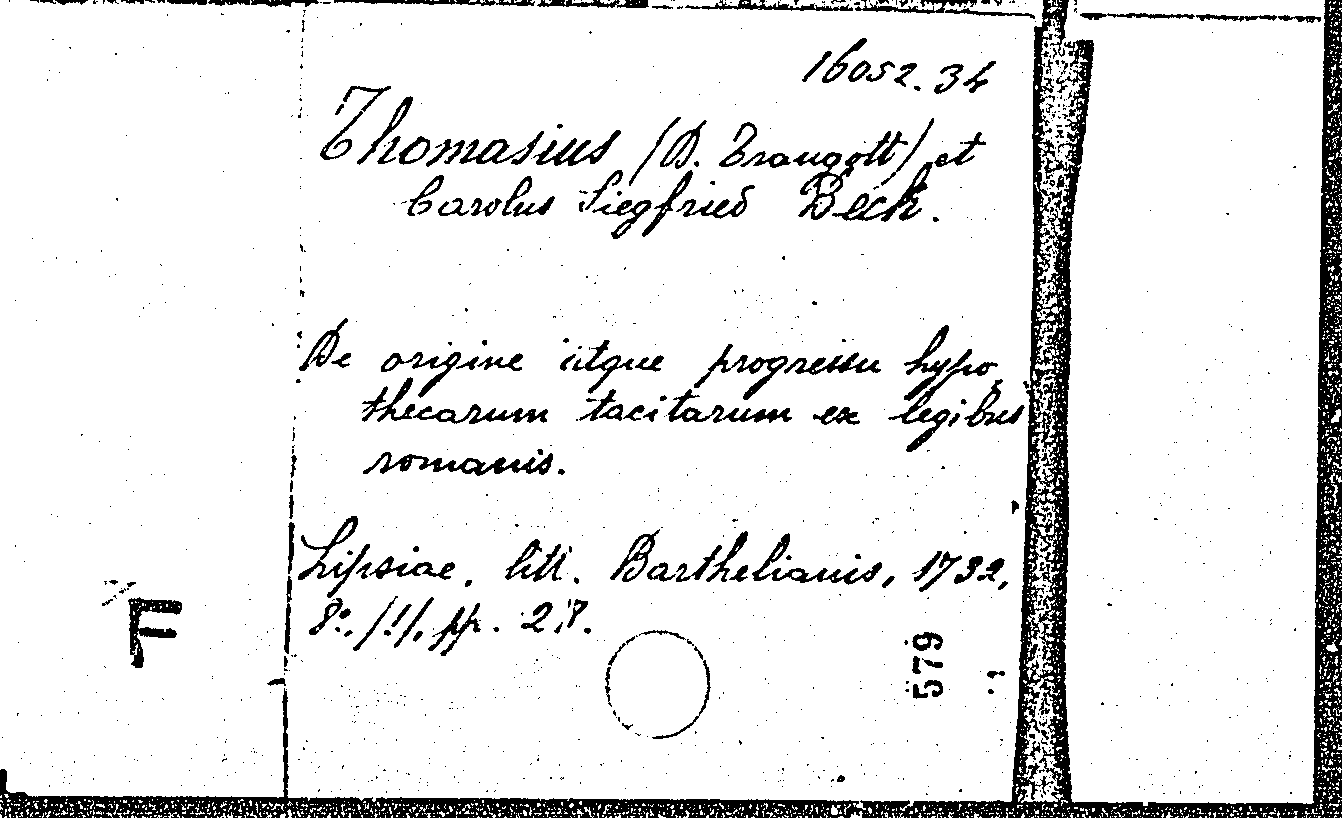 16052.34
Thomasius (D. Traugott) et
Carolus Siegfried Beck.
De origine atque progressu hypo-
thecarum tacitarum ex legibus
romanis.
Lipsiae, litt. Barthelianis, 1732,
8º., /!/, pp. 28.
579
F